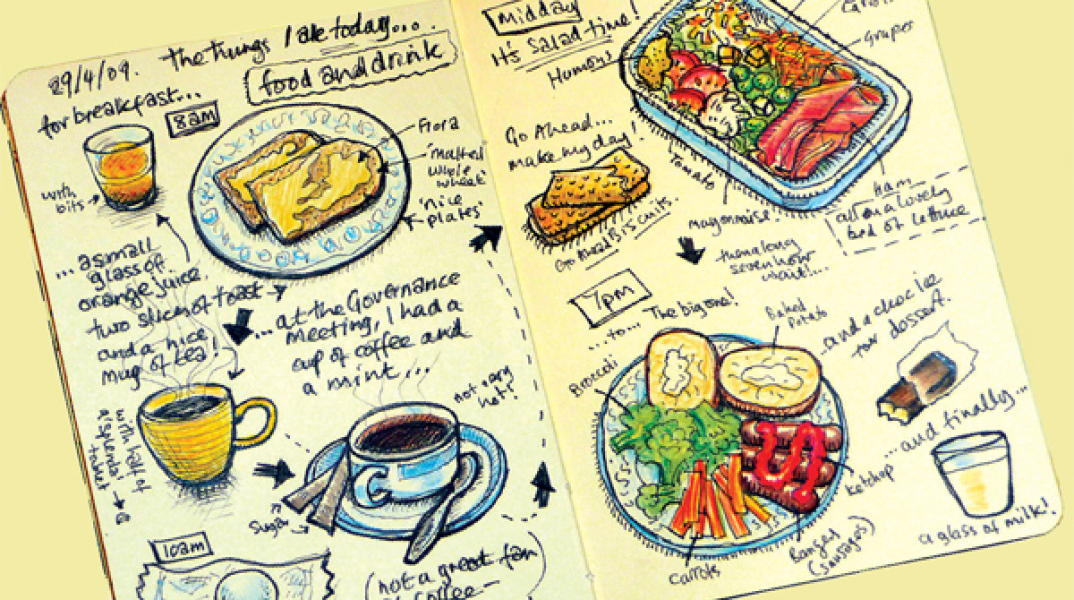 29/4/09. The things I ate today...
food and drink
for breakfast...
8am
Flora
'malted
whole
wheat'
'nice
plates'
with
bits
...a small
glass of
orange juice.
two slices of toast
and a nice
mug of tea!
with half of
a 'splenda'
tablet
...at the Governance
meeting, I had a
cup of coffee and
a mint...
not very
hot!
Sugar
10am
(not a great fan
of coffee-
midday
It's Salad time!
Humous
Carrot
Grapes
Go Ahead...
make my day!
Tomato
Go Ahead Biscuits.
mayonnaise!
ham
all on a lovely
bed of lettuce
then a long
seven hour
wait!...
7pm
...to... The big one!
Baked
Potato
Broccoli
...and a choc ice
for dessert.
...and finally...
Ketchup
Carrots
Bangers
(sausages)
a glass of milk!